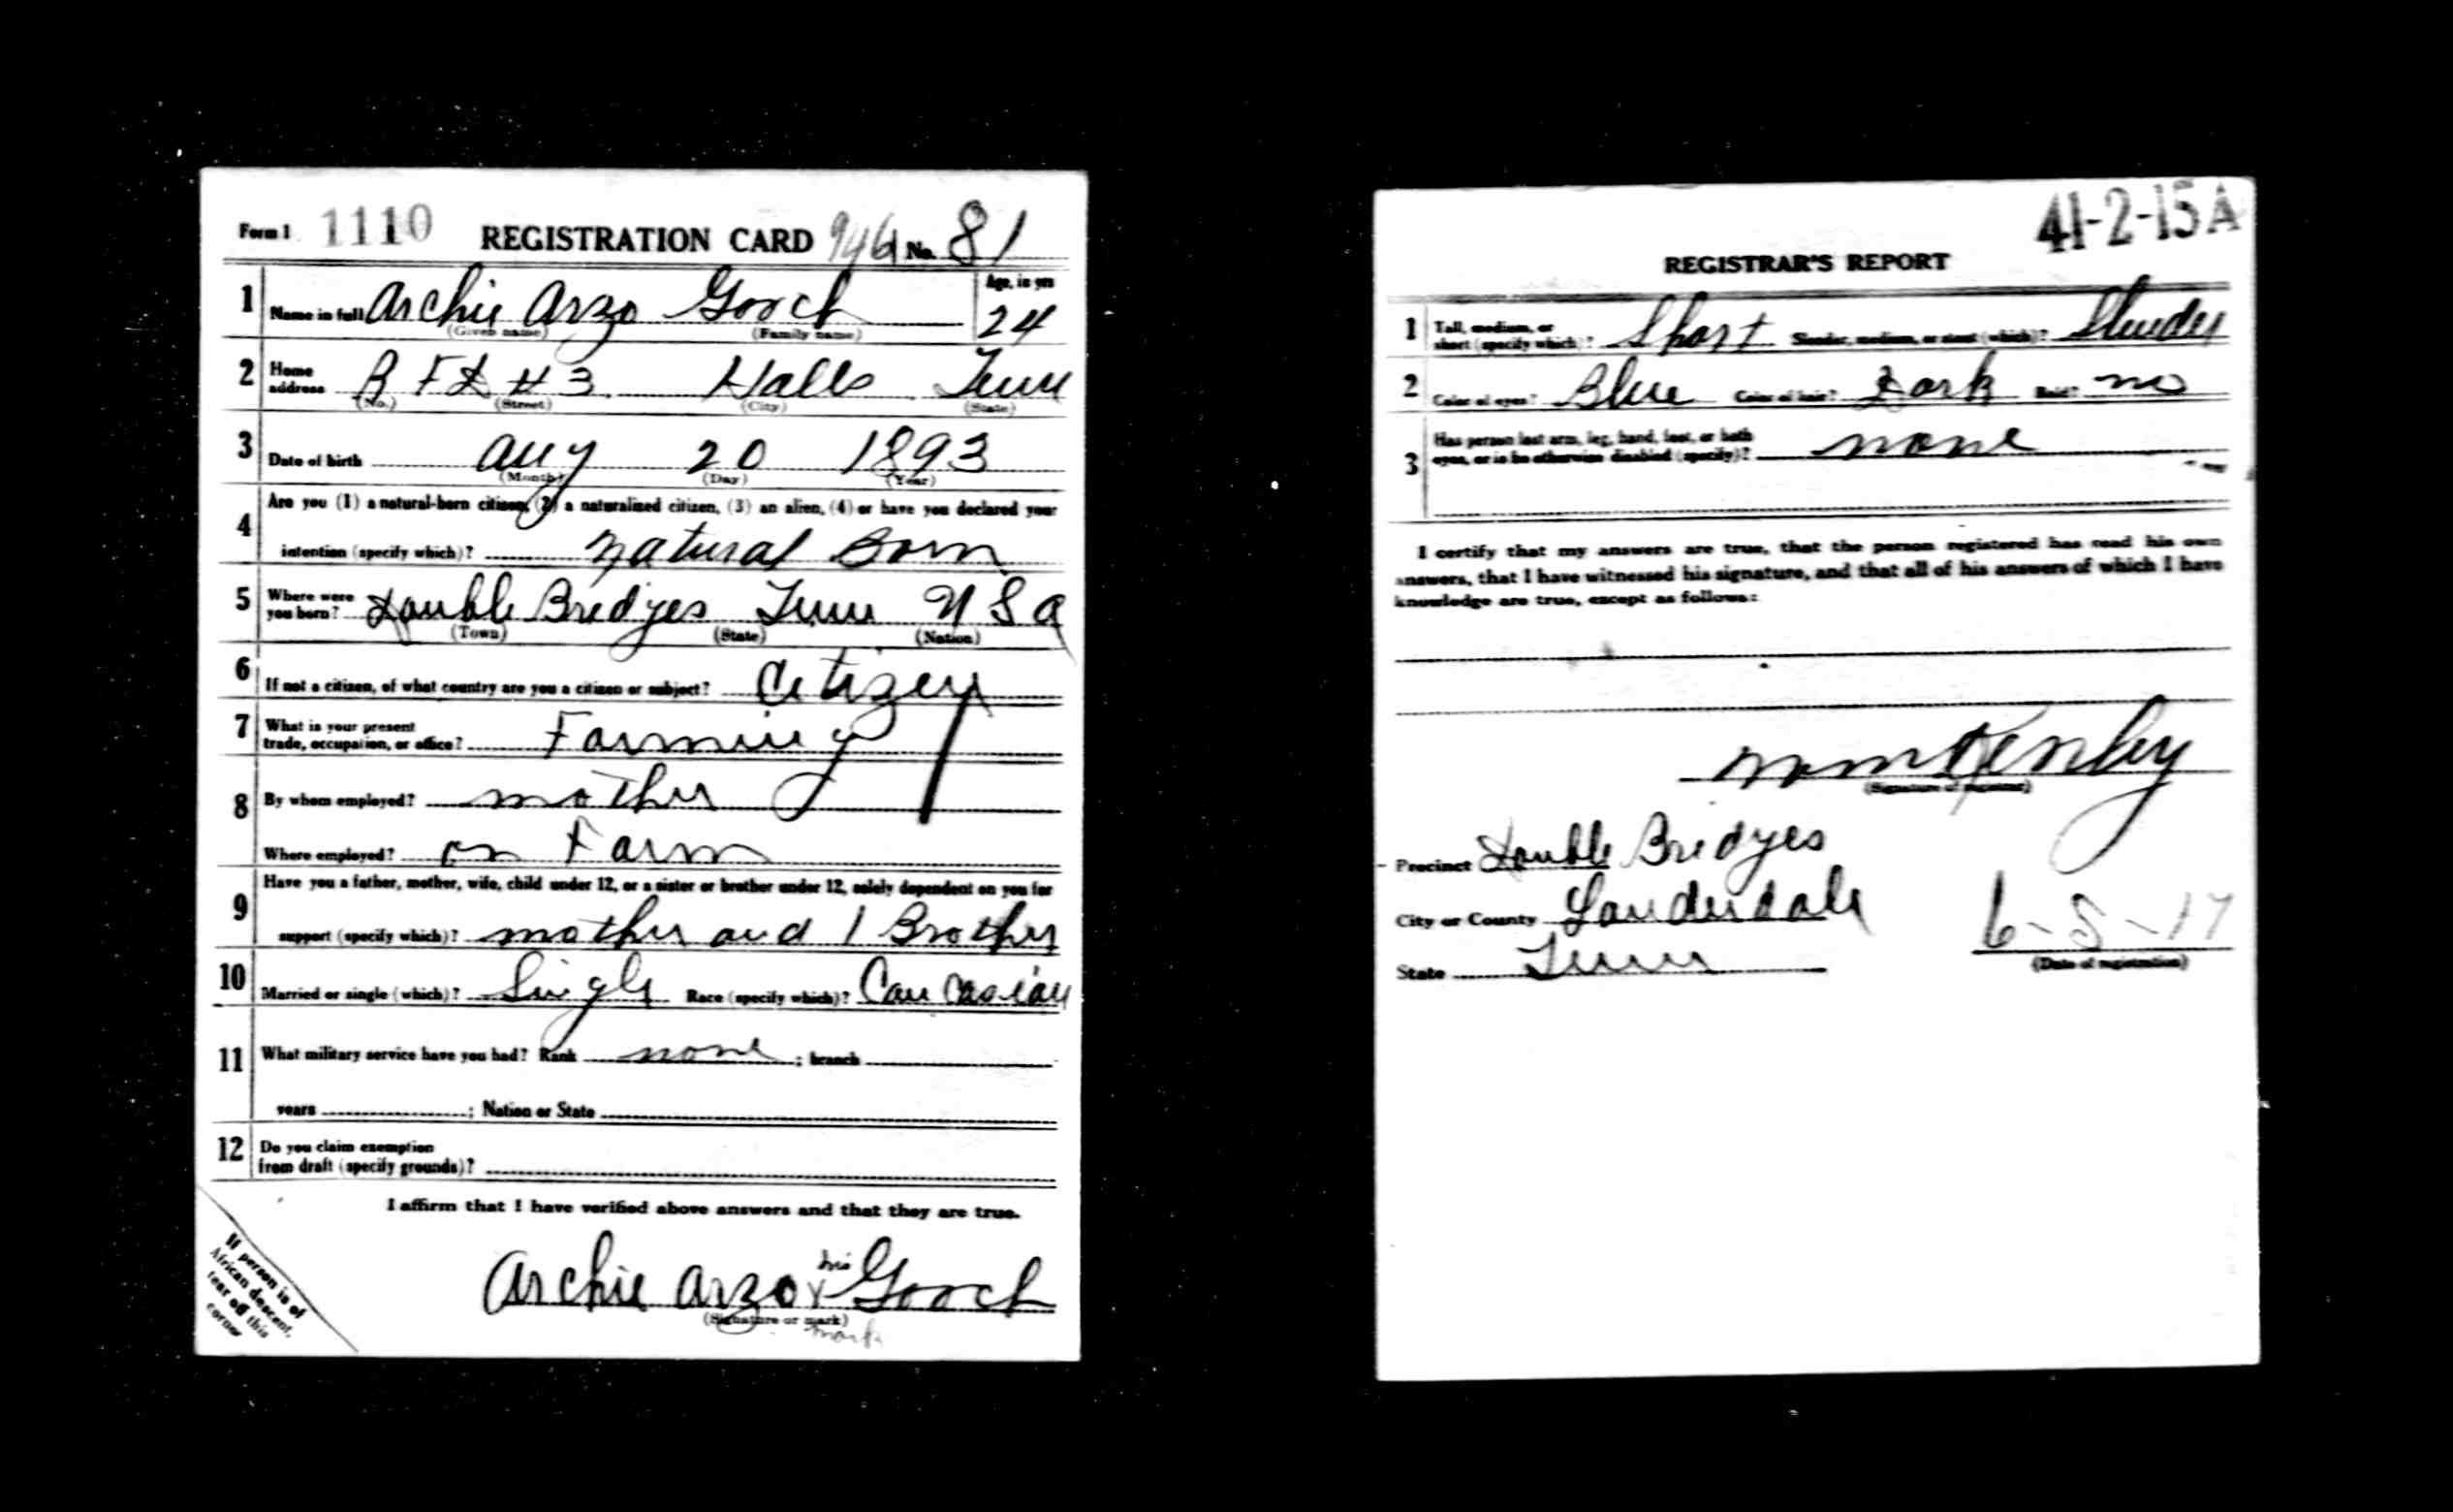 Form 1 1110 REGISTRATION CARD 946 No. 81
1 Name in full Archie Arzo Gooch Age, in yrs
(Given name) (Family name) 24
2 Home address R F D # 3 Halls Tenn
(No.) (Street) (City) (State)
3 Date of birth Aug 20 1893
(Month) (Day) (Year)
4 Are you (1) a natural-born citizen, (2) a naturalized citizen, (3) an alien, (4) or have you declared your
intention (specify which)? Natural Born
5 Where were you born? Double Bridges Tenn U S A
(Town) (State) (Nation)
6 If not a citizen, of what country are you a citizen or subject? Citizen
7 What is your present
trade, occupation, or office? Farming
8 By whom employed? mother
Where employed? on Farm
9 Have you a father, mother, wife, child under 12, or a sister or brother under 12, solely dependent on you for
support (specify which)? mother and 1 Brother
10 Married or single (which)? Single Race (specify which)? Caucasian
11 What military service have you had? Rank none ; branch
years ; Nation or State
12 Do you claim exemption
from draft (specify grounds)?
I affirm that I have verified above answers and that they are true.
his
Archie Arzo x Gooch
(Signature or mark)
mark
If person is of
African descent,
tear off this
corner
41-2-15 A
REGISTRAR'S REPORT
1 Tall, medium, or
short (specify which)? Short Slender, medium, or stout (which)? Slender
2 Color of eyes? Blue Color of hair? Dark Bald? no
3 Has person lost arm, leg, hand, foot, or both
eyes, or is he otherwise disabled (specify)? none
I certify that my answers are true, that the person registered has read his own
answers, that I have witnessed his signature, and that all of his answers of which I have
knowledge are true, except as follows:
(Signature of registrar)
Precinct Double Bridges
City or County Lauderdale
State Tenn
6-5-17
(Date of registration)